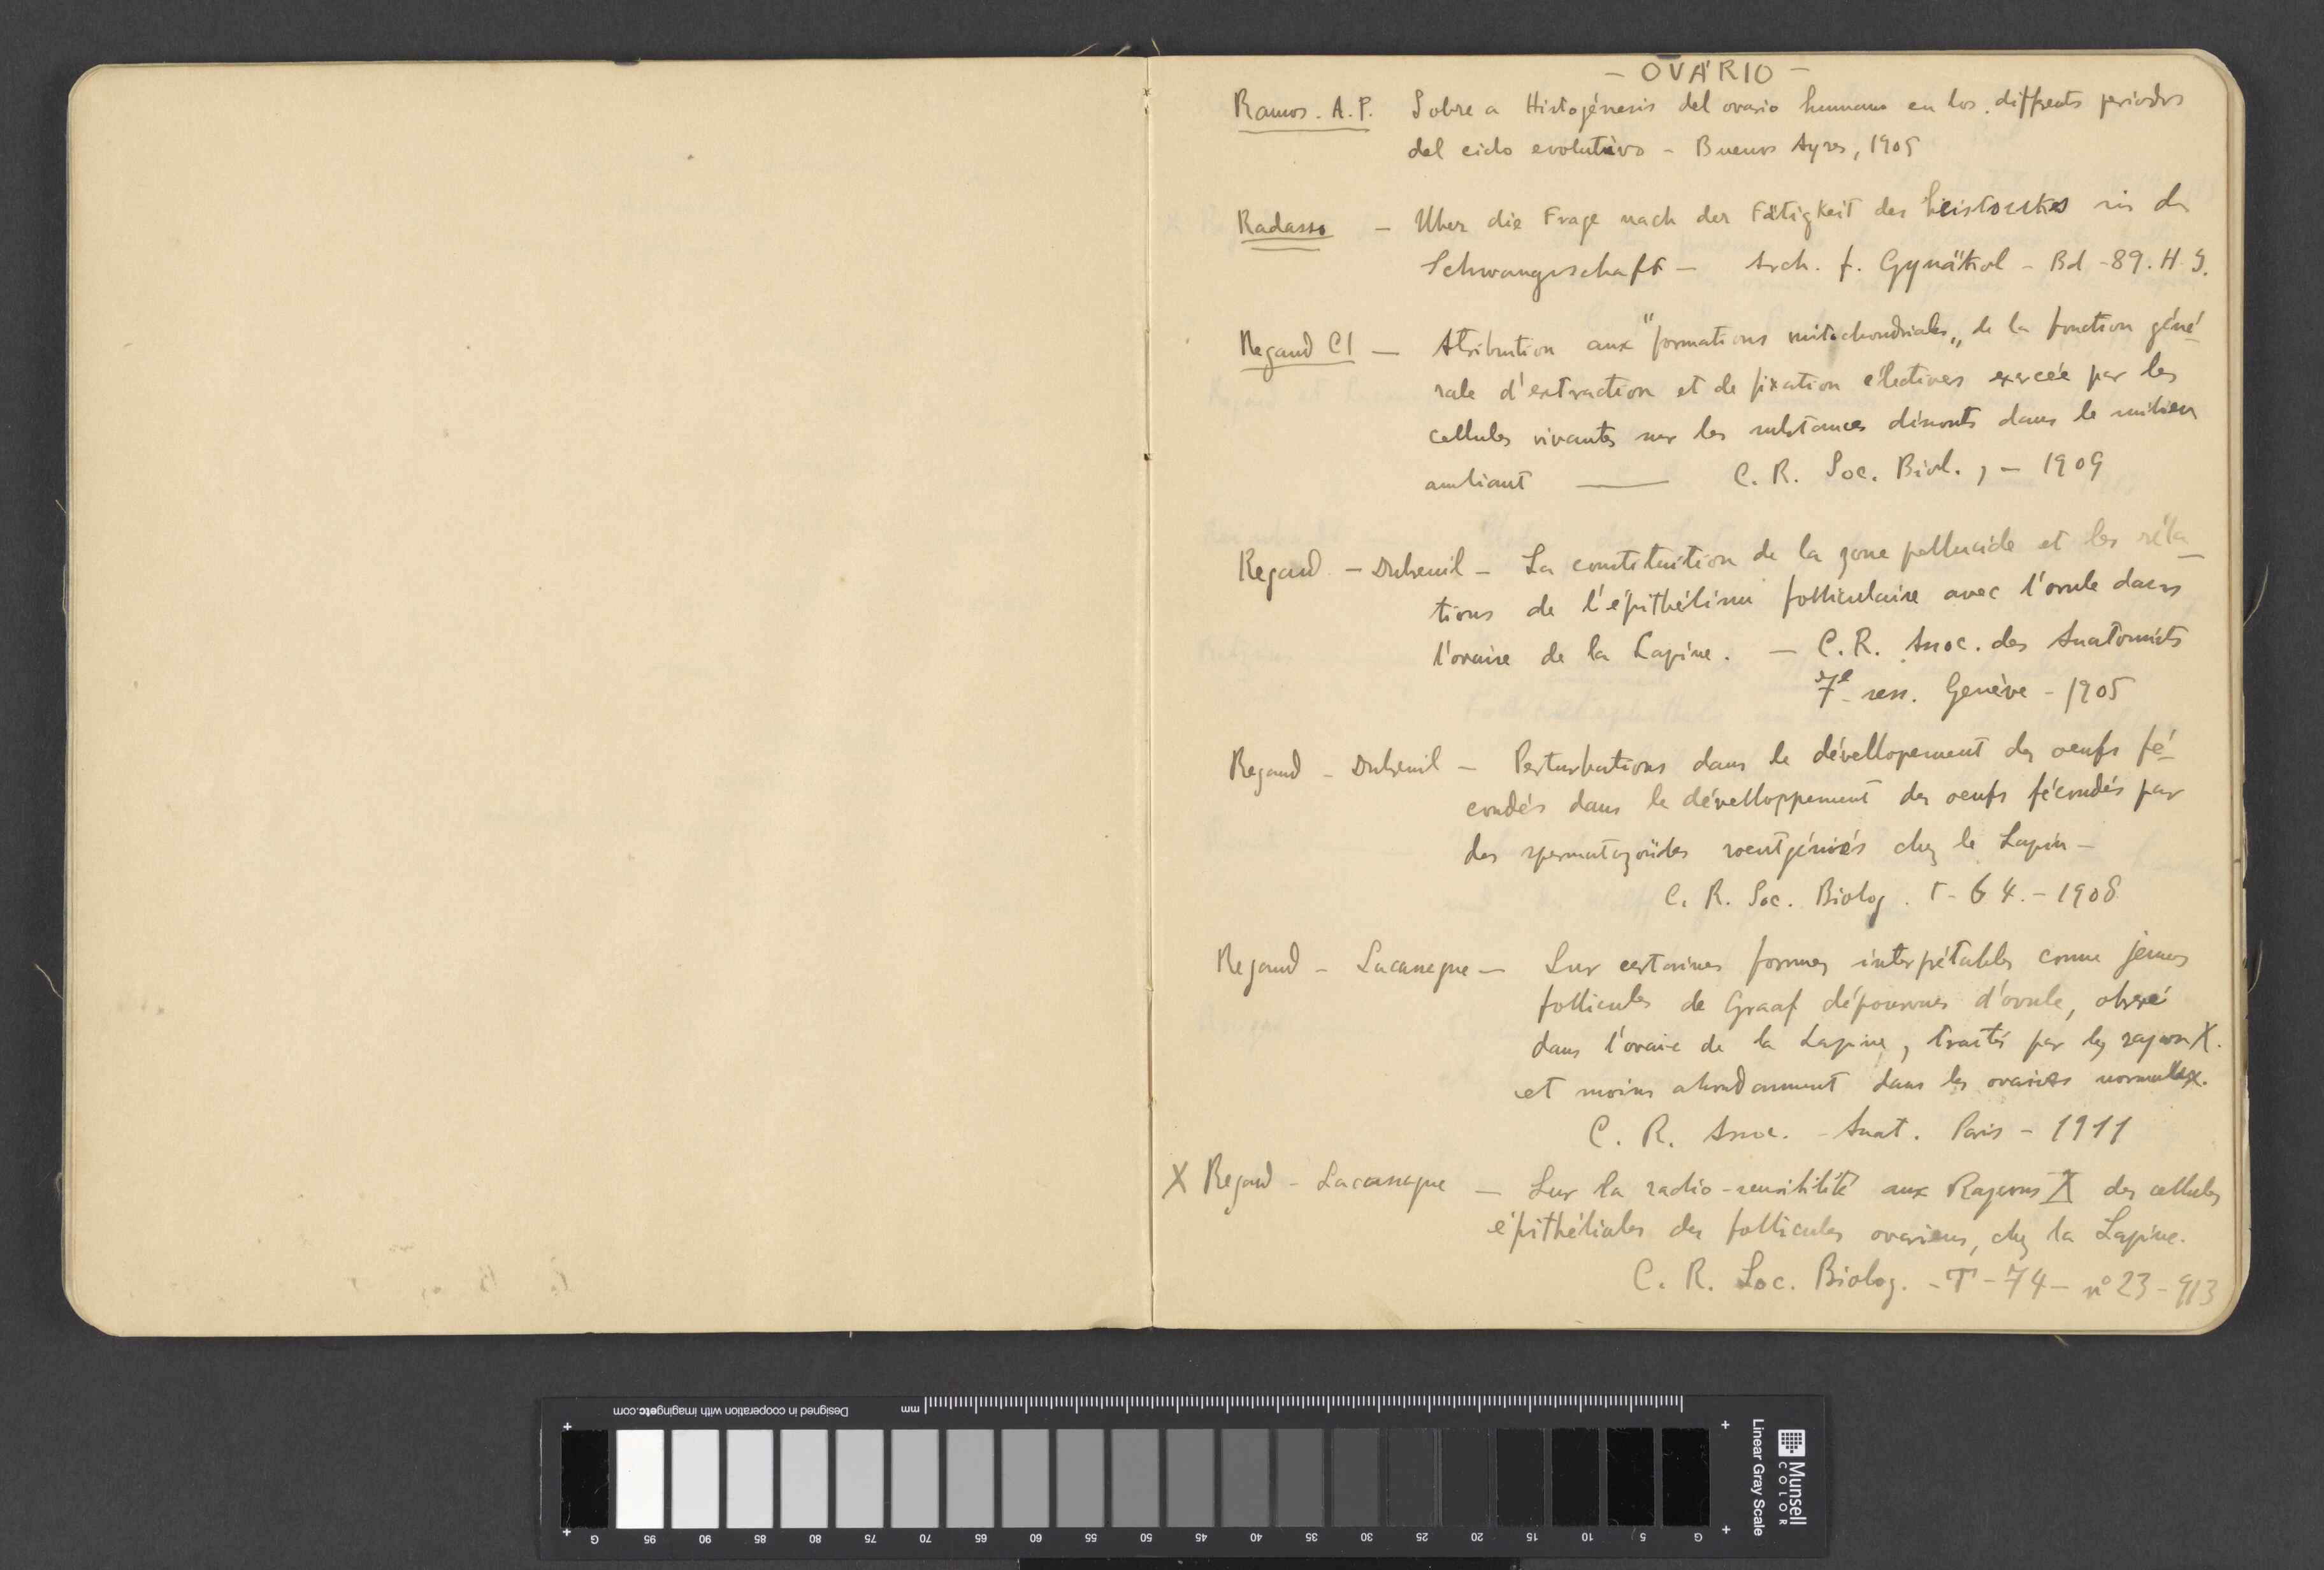 - OVÁRIO -
Ramos. A.P. Sobre a Histogénesis del ovario humano en los differents periodos
del ciclo evolutivo - Buenos Ayres, 1905
Radasso - Uber die Frage nach der Fätigkeit des in der
Schwangerschaft - Arch. f. Gynäkol - Bd - 89. H.
Regaud Cl - Atribution aux "formations mitochondriales„ de la fonction géné-
rale d'extraction et de fixation électives exercée par les
cellules vivantes sur les substances dissouts dans le milieu
ambiant —— C. R. Soc. Biol., - 1909
Regaud - Dubreuil - La constituition de la zone pellucide et les réla-
tions de l'épithélium folliculaire avec l'ovule dans
l'ovaire de la Lapine. - C.R. Assoc. des Anatomists
7e sess. Genève - 1905
Regaud - Dubreuil - Perturbations dans le dévellopement des oeufs fé-
condés dans le dévelloppement des oeufs fécondés par
des spermatozoïdes roentgénisés chez le Lapin -
C. R. Soc. Biolog. T - 64. - 1908
Regaud - Lacassagne - Sur certaines formes interpétables comme jeunes
follicules de Graaf dépourvues d'ovule, observé
dans l'ovaire de la Lapine, traités par les rayons X.
et moins abondamment dans les ovaires normaux.
C. R. Assoc. - Anat. Paris - 1911
X Regaud - Lacassagne - Sur la radio-sensibilité aux Rayons X des cellules
épithéliales des follicules ovariens, chez la Lapine.
C. R. Soc. Biolog. - T - 74 - nº 23 - 913
Designed in cooperation with imagingetc.com
mm
G 95 90 85 80 75 70 65 60 55 50 45 40 35 30 25 20 15 10 5 G
Munsell
COLOR
Linear Gray Scale